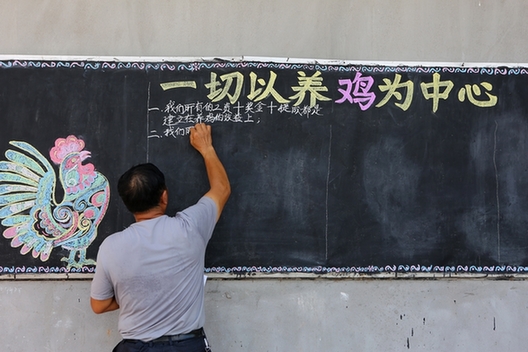 一切以养鸡为中心
一.我们所有的工资+奖金+提成都是
建立在养鸡的效益上；
二.我们